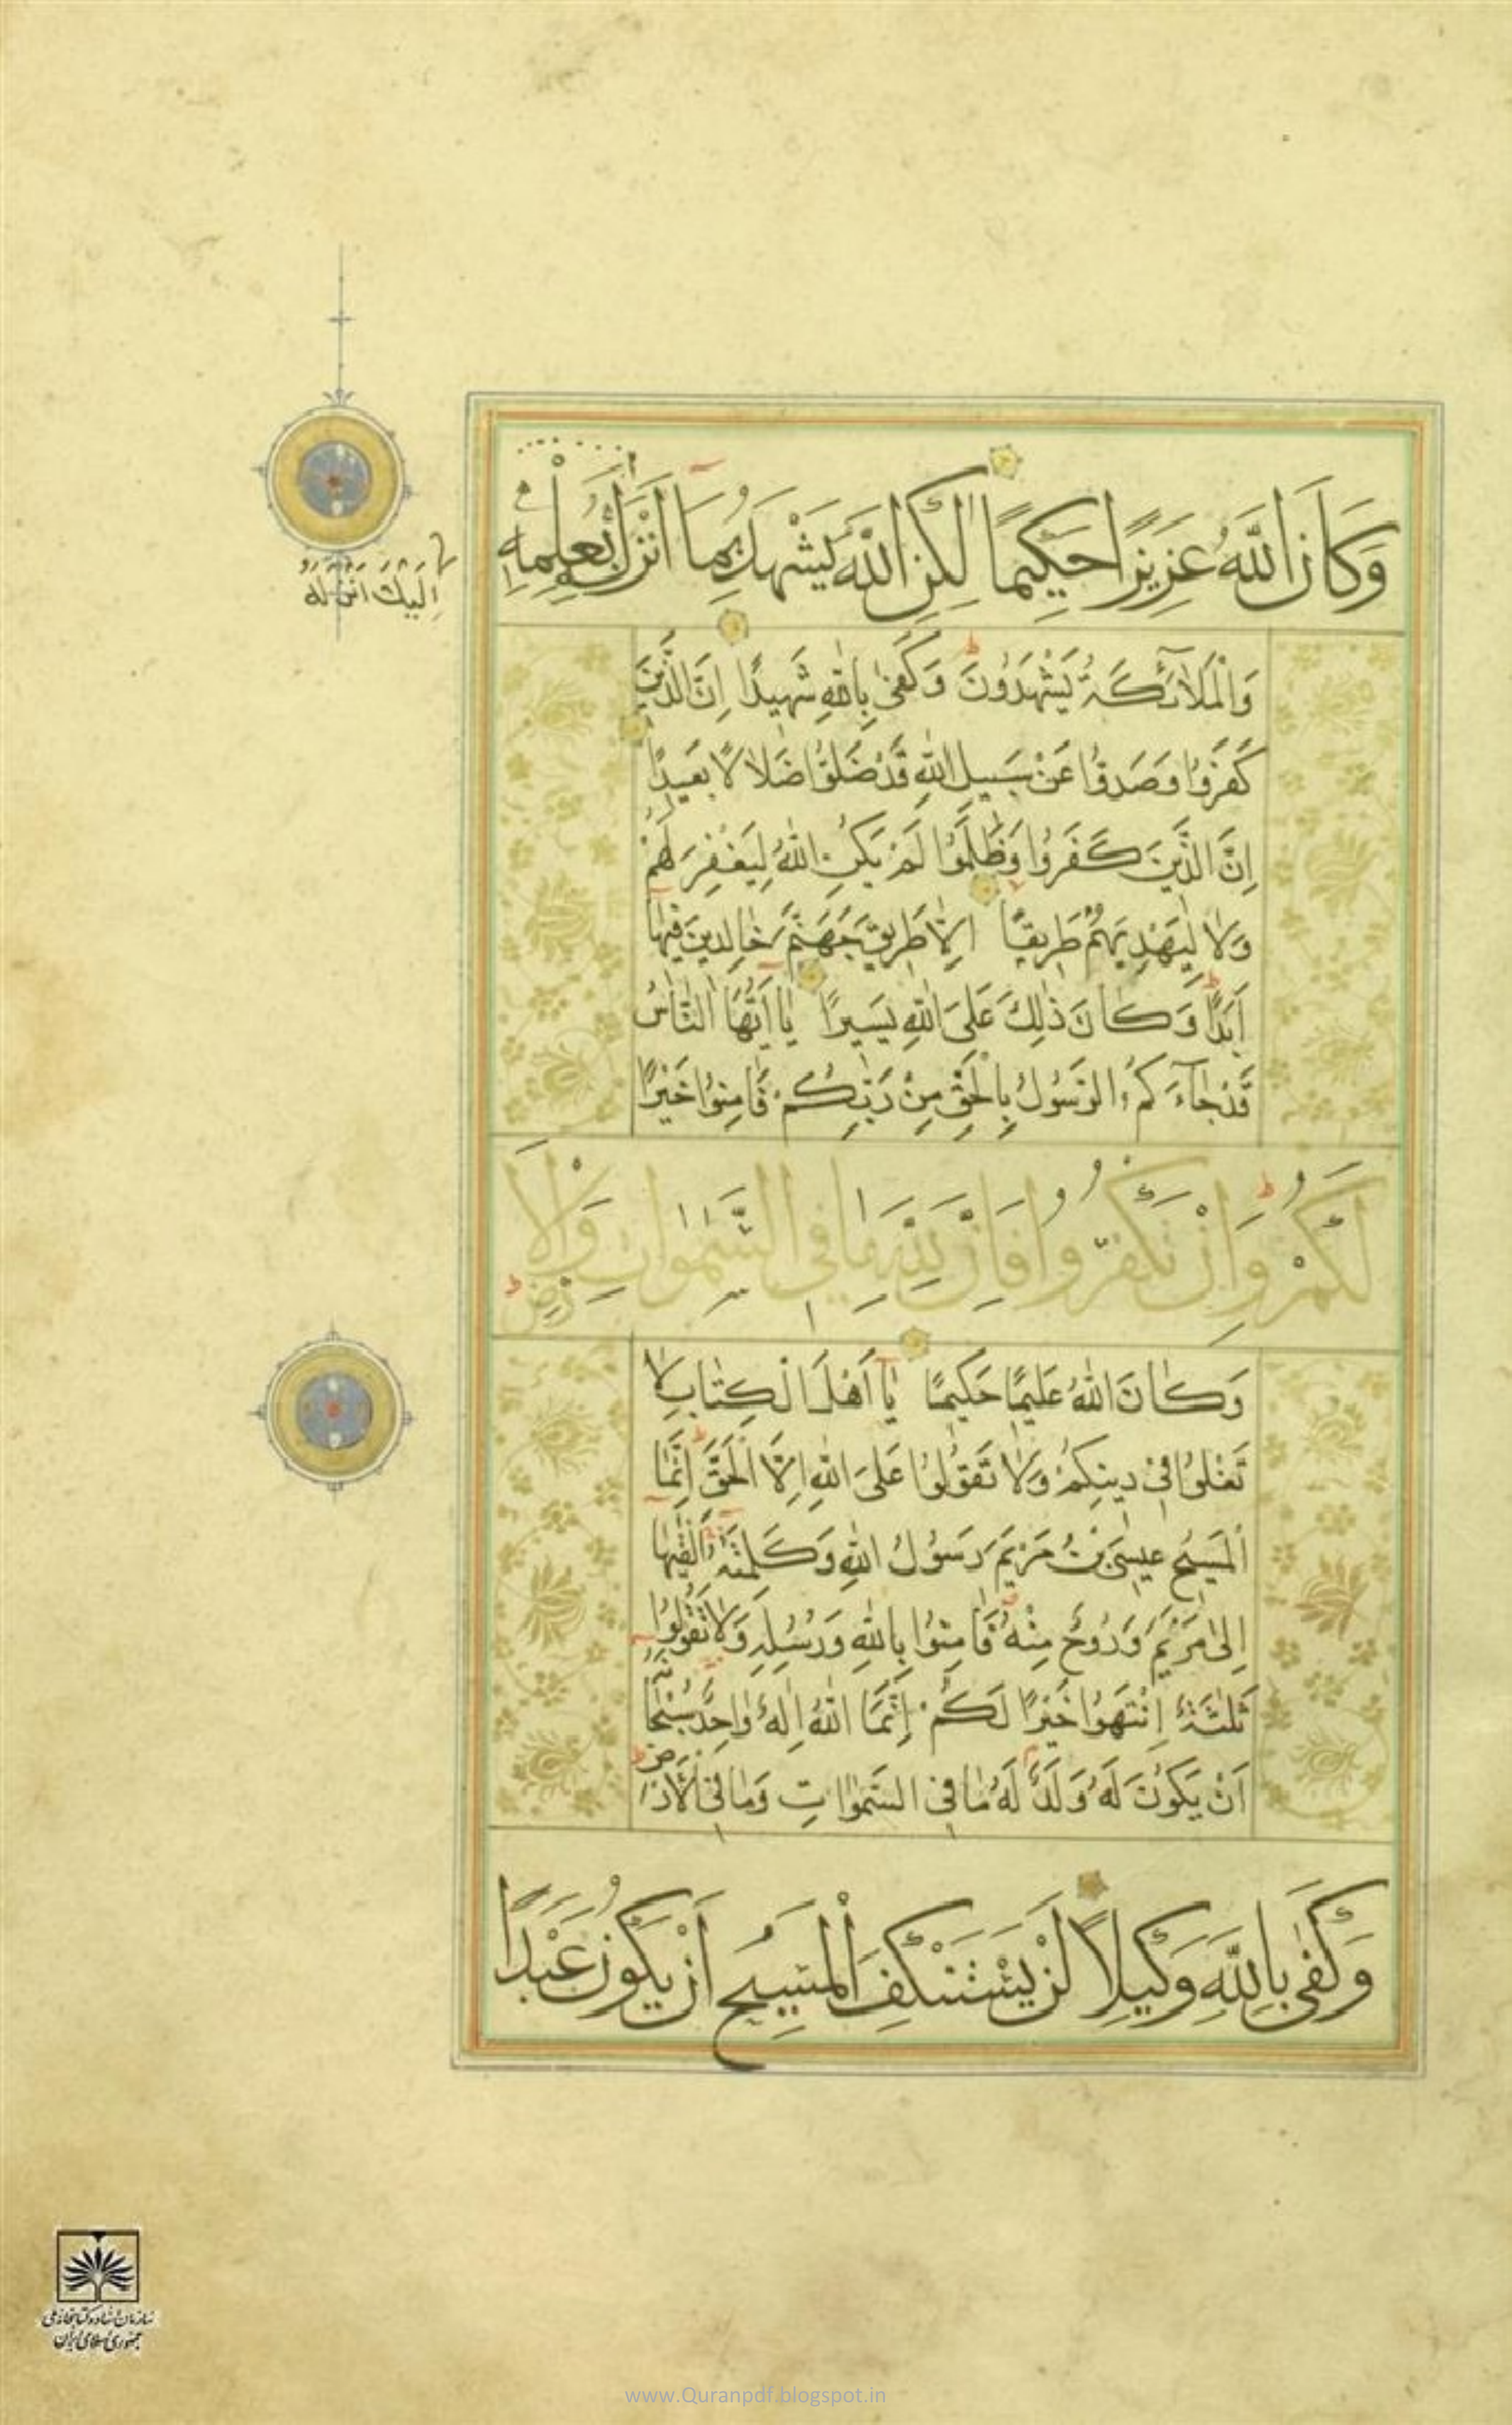 وَكَانَ اللَّهُ عَزِيزًا حَكِيمًا لٰكِنِ اللَّهُ يَشْهَدُ بِمَا أَنْزَلَ بِعِلْمِهِ
اِلَيْكَ اَنْزَلَهُ
وَالْمَلَائِكَةُ يَشْهَدُونَ وَكَفىٰ بِاللّٰهِ شَهِيدًا اِنَّ الَّذِينَ
كَفَرُوا وَصَدُّوا عَنْ سَبِيلِ اللّٰهِ قَدْ ضَلُّوا ضَلَالًا بَعِيدًا
اِنَّ الَّذِينَ كَفَرُوا وَظَلَمُوا لَمْ يَكُنِ اللّٰهُ لِيَغْفِرَ لَهُمْ
وَلَا لِيَهْدِيَهُمْ طَرِيقًا اِلَّا طَرِيقَ جَهَنَّمَ خَالِدِينَ فِيهَا
اَبَدًا وَكَانَ ذٰلِكَ عَلَى اللّٰهِ يَسِيرًا يَا اَيُّهَا النَّاسُ
قَدْ جَاءَكُمُ الرَّسُولُ بِالْحَقِّ مِنْ رَبِّكُمْ فَامِنُوا خَيْرًا
لَكُمْ وَاِنْ تَكْفُرُوا فَاِنَّ لِلّٰهِ مَا فِي السَّمٰوَاتِ وَالْاَرْضِ
وَكَانَ اللّٰهُ عَلِيمًا حَكِيمًا يَا اَهْلَ الْكِتَابِ لَا
تَغْلُوا فِي دِينِكُمْ وَلَا تَقُولُوا عَلَى اللّٰهِ اِلَّا الْحَقَّ اِنَّمَا
الْمَسِيحُ عِيسَى بْنُ مَرْيَمَ رَسُولُ اللّٰهِ وَكَلِمَتُهُ اَلْقٰيهَا
اِلىٰ مَرْيَمَ وَرُوحٌ مِنْهُ فَامِنُوا بِاللّٰهِ وَرُسُلِهِ وَلَا تَقُولُوا
ثَلٰثَةٌ اِنْتَهُوا خَيْرًا لَكُمْ اِنَّمَا اللّٰهُ اِلٰهٌ وَاحِدٌ سُبْحَانَهُ
اَنْ يَكُونَ لَهُ وَلَدٌ لَهُ مَا فِي السَّمٰوَاتِ وَمَا فِي الْاَرْضِ
وَكَفىٰ بِاللّٰهِ وَكِيلًا لَنْ يَسْتَنْكِفَ الْمَسِيحُ اَنْ يَكُونَ عَبْدًا
سازمان اسناد و کتابخانه ملی
جمهوری اسلامی ایران
www.Quranpdf.blogspot.in